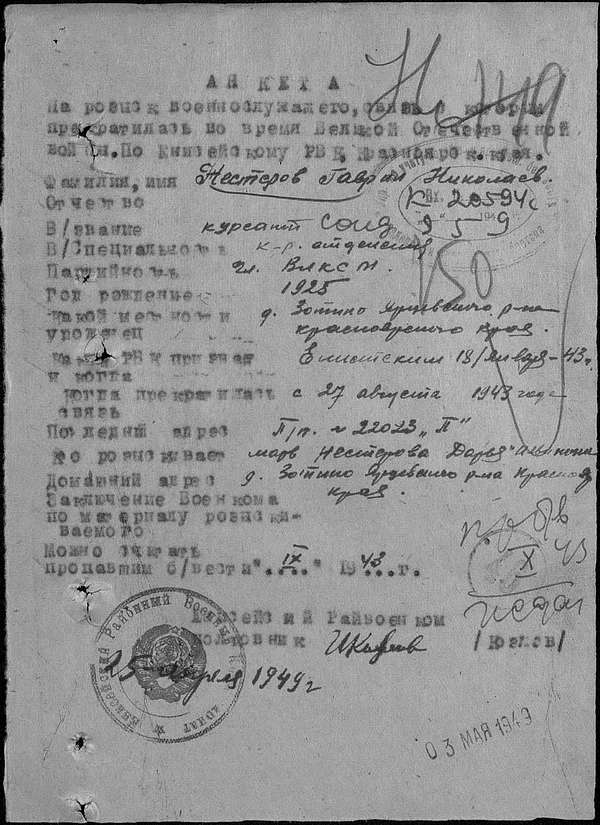 АНКЕТА
На розыск военнослужащего, связь с которым
прекратилась во время Великой Отечественной
войны. По Енисейскому РВК Красноярск. края.
Фамилия, имя Нестеров Гаврил Николаев.
Отчество
Вх. 20594с
9 5 9
В/звание курсант
В/Специальность к-р. отделения
Партийность чл. ВЛКСМ.
Год рождение 1925
какой местности д. Зотино Ярцевского р-на
уроженец красноярского края.
каким РВК призван Енисейским 18/января-43г.
и когда
когда прекратилась с 27 августа 1943 года
связь
Последний адрес П/п. № 22023 „П"
кто розыскивает мать Нестерова Дарья
Домашний адрес д. Зотино Ярцевского р-на Красноя
края.
Заключение Военкома
по материалу розыски-
ваемого
Можно считать
пропавшим б/вести "..IX.." 1943.г.
X 43
Енисейский Райвоенком
полковник /Козлов/
Енисейский Районный Военный
25 апреля 1949г
03 МАЯ 1949